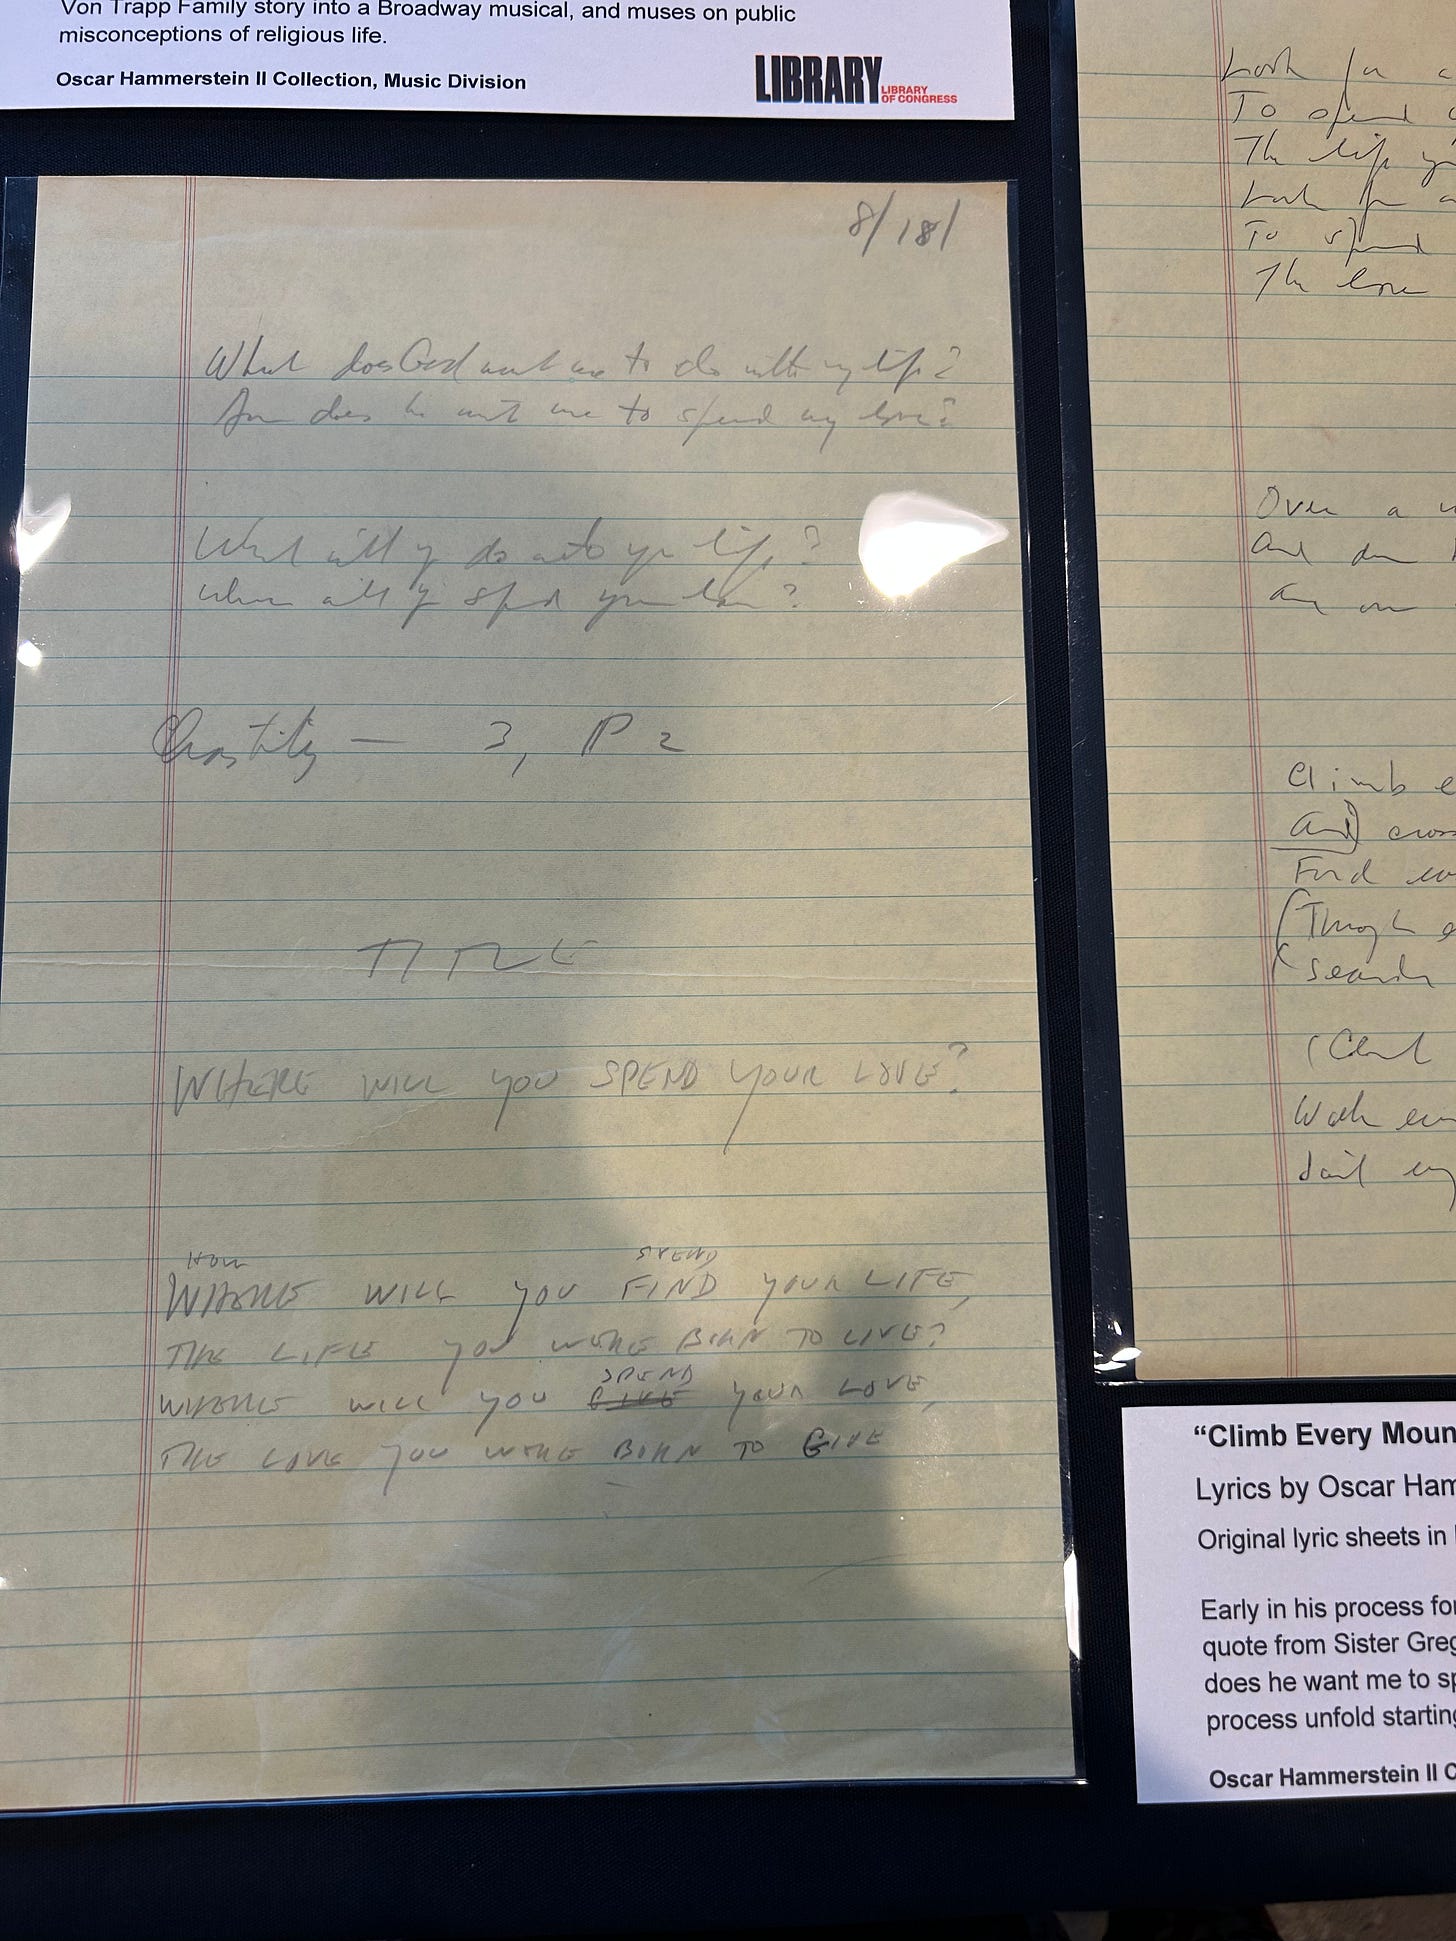 Von Trapp Family story into a Broadway musical, and muses on public
misconceptions of religious life.
Oscar Hammerstein II Collection, Music Division
LIBRARY
LIBRARY
OF CONGRESS
8/18/
What does God want me to do with my life?
How does he want me to spend my love?
What will you do with your life?
Where will you spend your love?
Chastity — 3, P 2
TITLE
WHERE WILL YOU SPEND YOUR LOVE?
HOW SPEND
WHERE WILL YOU FIND YOUR LIFE,
THE LIFE YOU WERE BORN TO LIVE?
SPEND
WHERE WILL YOU GIVE YOUR LOVE,
THE LOVE YOU WERE BORN TO GIVE
Look for a
To spend
The life
Look for a
To spend
The love
Over a
and
Climb
and cross
Find
Though
Search
Walk
“Climb Every Moun
Lyrics by Oscar Ham
Original lyric sheets in
Early in his process for
quote from Sister Greg
does he want me to sp
process unfold starting
Oscar Hammerstein II C